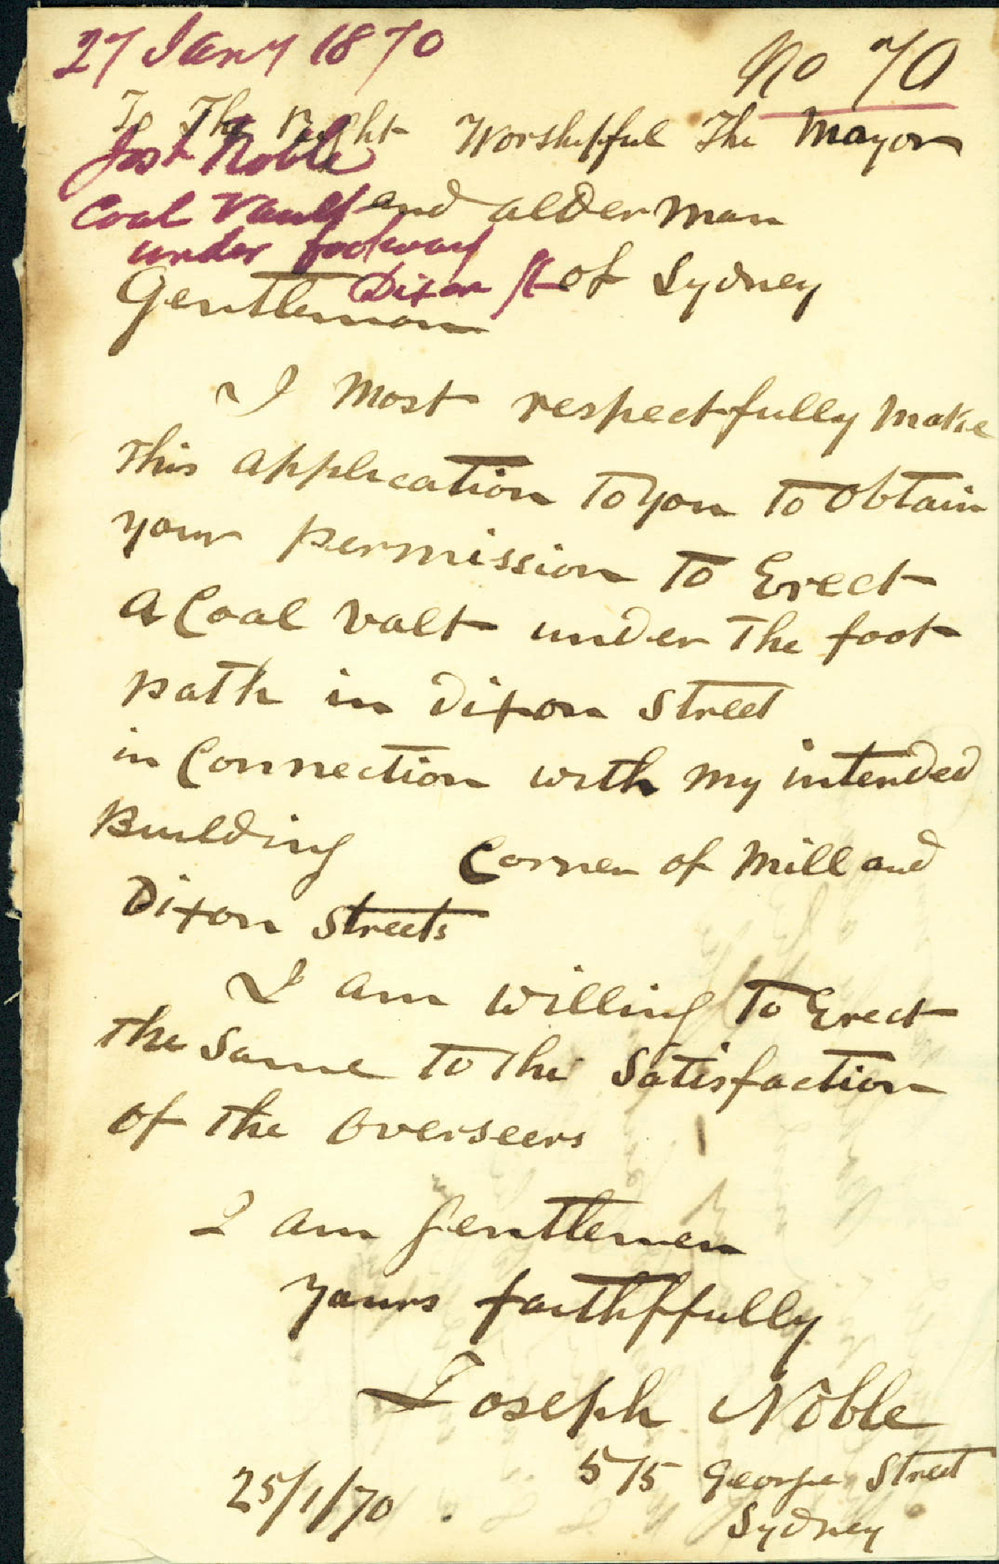 27 Jany 1870
No 70
To The right Worshipful The Mayor
Josh Noble
Coal Vault
and alderman
under footway
Dixon St
of Sydney
Gentleman
I Most respectfully Make
This application To you To obtain
your permission To Erect
A Coal valt under The foot
path in Dixon Street
in Connection with my intended
Building Corner of Mill and
Dixon Streets
I am willing To Erect
The Same To The Satisfaction
of the overseers
I am Gentlemen
yours faithffully
Joseph Noble
575 George Street
25/1/70.
Sydney